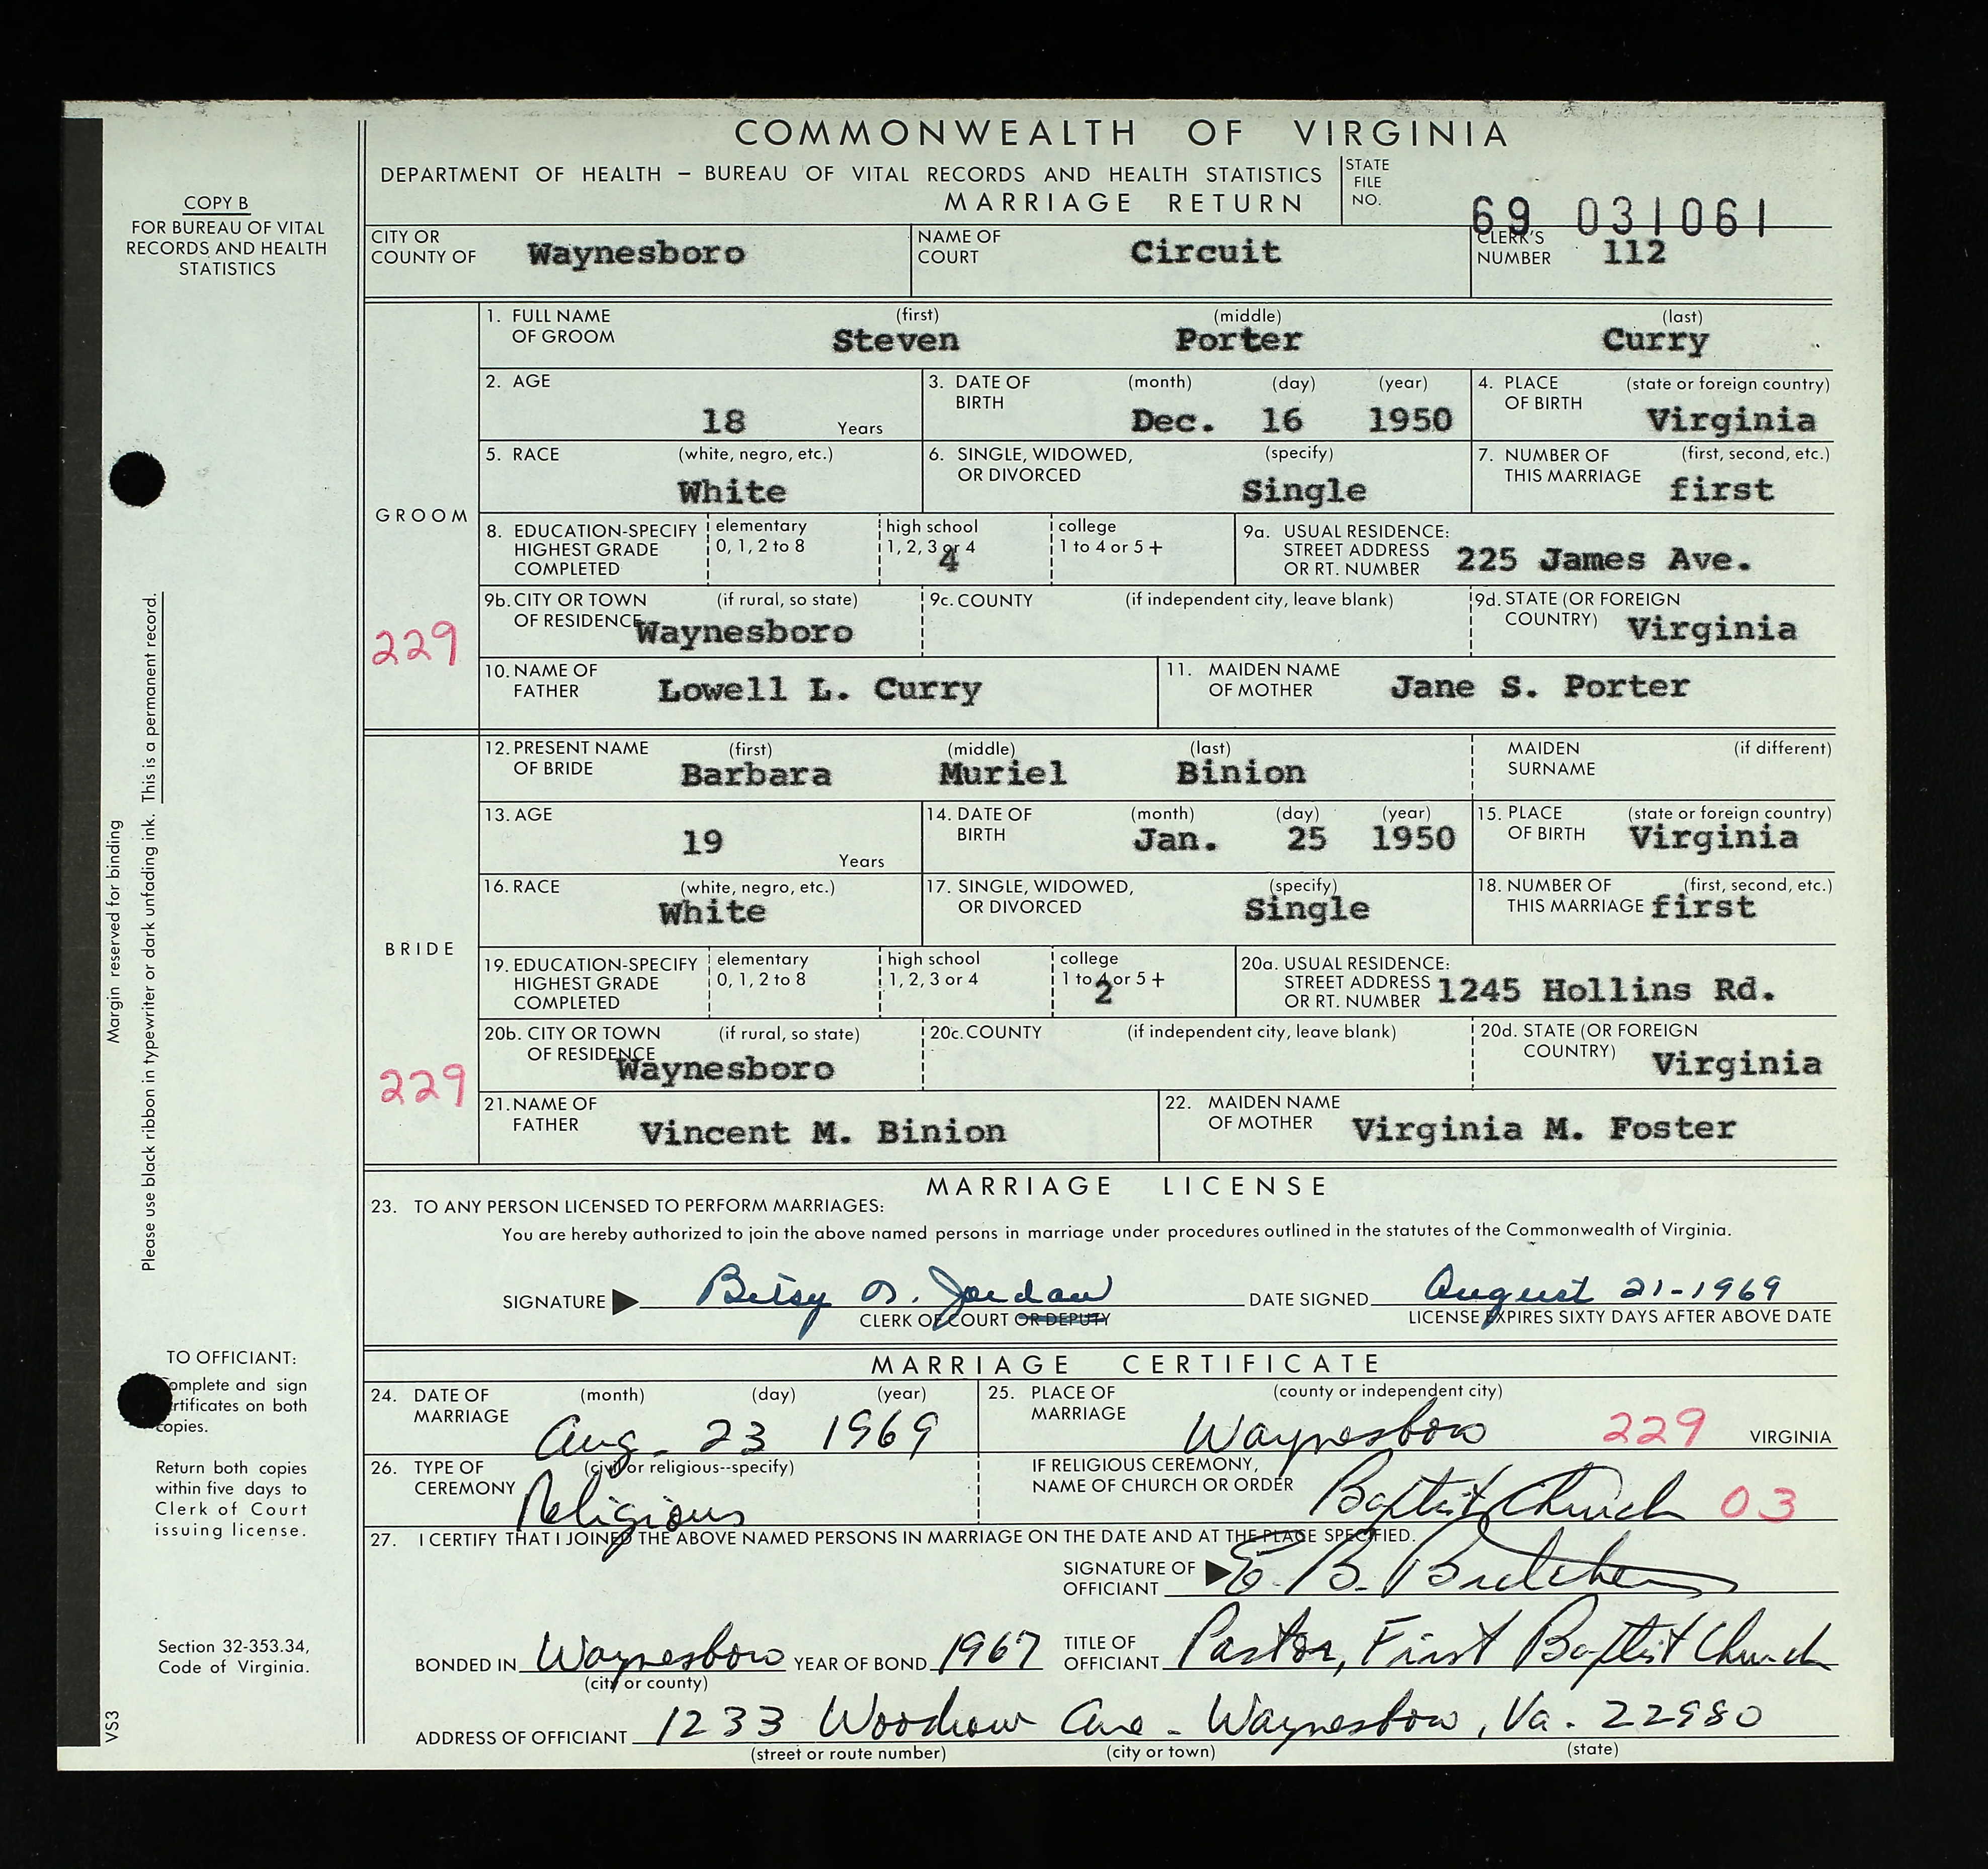 COMMONWEALTH OF VIRGINIA
DEPARTMENT OF HEALTH – BUREAU OF VITAL RECORDS AND HEALTH STATISTICS
MARRIAGE RETURN
STATE FILE NO. 69 031061
COPY B
FOR BUREAU OF VITAL
RECORDS AND HEALTH
STATISTICS
CITY OR COUNTY OF Waynesboro NAME OF COURT Circuit CLERK'S NUMBER 112
GROOM
229
1. FULL NAME OF GROOM (first) Steven (middle) Porter (last) Curry
2. AGE 18 Years 3. DATE OF BIRTH (month) (day) (year) Dec. 16 1950 4. PLACE OF BIRTH (state or foreign country) Virginia
5. RACE (white, negro, etc.) White 6. SINGLE, WIDOWED, OR DIVORCED (specify) Single 7. NUMBER OF THIS MARRIAGE (first, second, etc.) first
8. EDUCATION-SPECIFY HIGHEST GRADE COMPLETED elementary 0, 1, 2 to 8 high school 1, 2, 3 or 4 4 college 1 to 4 or 5+ 9a. USUAL RESIDENCE: STREET ADDRESS OR RT. NUMBER 225 James Ave.
9b. CITY OR TOWN OF RESIDENCE (if rural, so state) Waynesboro 9c. COUNTY (if independent city, leave blank) 9d. STATE (OR FOREIGN COUNTRY) Virginia
10. NAME OF FATHER Lowell L. Curry 11. MAIDEN NAME OF MOTHER Jane S. Porter
BRIDE
229
12. PRESENT NAME OF BRIDE (first) Barbara (middle) Muriel (last) Binion MAIDEN SURNAME (if different)
13. AGE 19 Years 14. DATE OF BIRTH (month) (day) (year) Jan. 25 1950 15. PLACE OF BIRTH (state or foreign country) Virginia
16. RACE (white, negro, etc.) White 17. SINGLE, WIDOWED, OR DIVORCED (specify) Single 18. NUMBER OF THIS MARRIAGE (first, second, etc.) first
19. EDUCATION-SPECIFY HIGHEST GRADE COMPLETED elementary 0, 1, 2 to 8 high school 1, 2, 3 or 4 college 1 to 4 or 5+ 2 20a. USUAL RESIDENCE: STREET ADDRESS OR RT. NUMBER 1245 Hollins Rd.
20b. CITY OR TOWN OF RESIDENCE (if rural, so state) Waynesboro 20c. COUNTY (if independent city, leave blank) 20d. STATE (OR FOREIGN COUNTRY) Virginia
21. NAME OF FATHER Vincent M. Binion 22. MAIDEN NAME OF MOTHER Virginia M. Foster
MARRIAGE LICENSE
23. TO ANY PERSON LICENSED TO PERFORM MARRIAGES:
You are hereby authorized to join the above named persons in marriage under procedures outlined in the statutes of the Commonwealth of Virginia.
SIGNATURE Betsy Jordan DATE SIGNED August 21-1969
CLERK OF COURT OR DEPUTY LICENSE EXPIRES SIXTY DAYS AFTER ABOVE DATE
MARRIAGE CERTIFICATE
24. DATE OF MARRIAGE (month) (day) (year) Aug. 23 1969 25. PLACE OF MARRIAGE (county or independent city) Waynesboro 229 VIRGINIA
26. TYPE OF CEREMONY (civil or religious--specify) Religious IF RELIGIOUS CEREMONY, NAME OF CHURCH OR ORDER Baptist Church 03
27. I CERTIFY THAT I JOINED THE ABOVE NAMED PERSONS IN MARRIAGE ON THE DATE AND AT THE PLACE SPECIFIED.
SIGNATURE OF OFFICIANT E. B.
BONDED IN Waynesboro (city or county) YEAR OF BOND 1967 TITLE OF OFFICIANT Pastor, First Baptist Church
ADDRESS OF OFFICIANT 1233 Woodrow Ave - Waynesboro, Va. 22980
(street or route number) (city or town) (state)
Margin reserved for binding
Please use black ribbon in typewriter or dark unfading ink. This is a permanent record.
TO OFFICIANT:
omplete and sign
rtificates on both
copies.
Return both copies
within five days to
Clerk of Court
issuing license.
Section 32-353.34,
Code of Virginia.
VS3